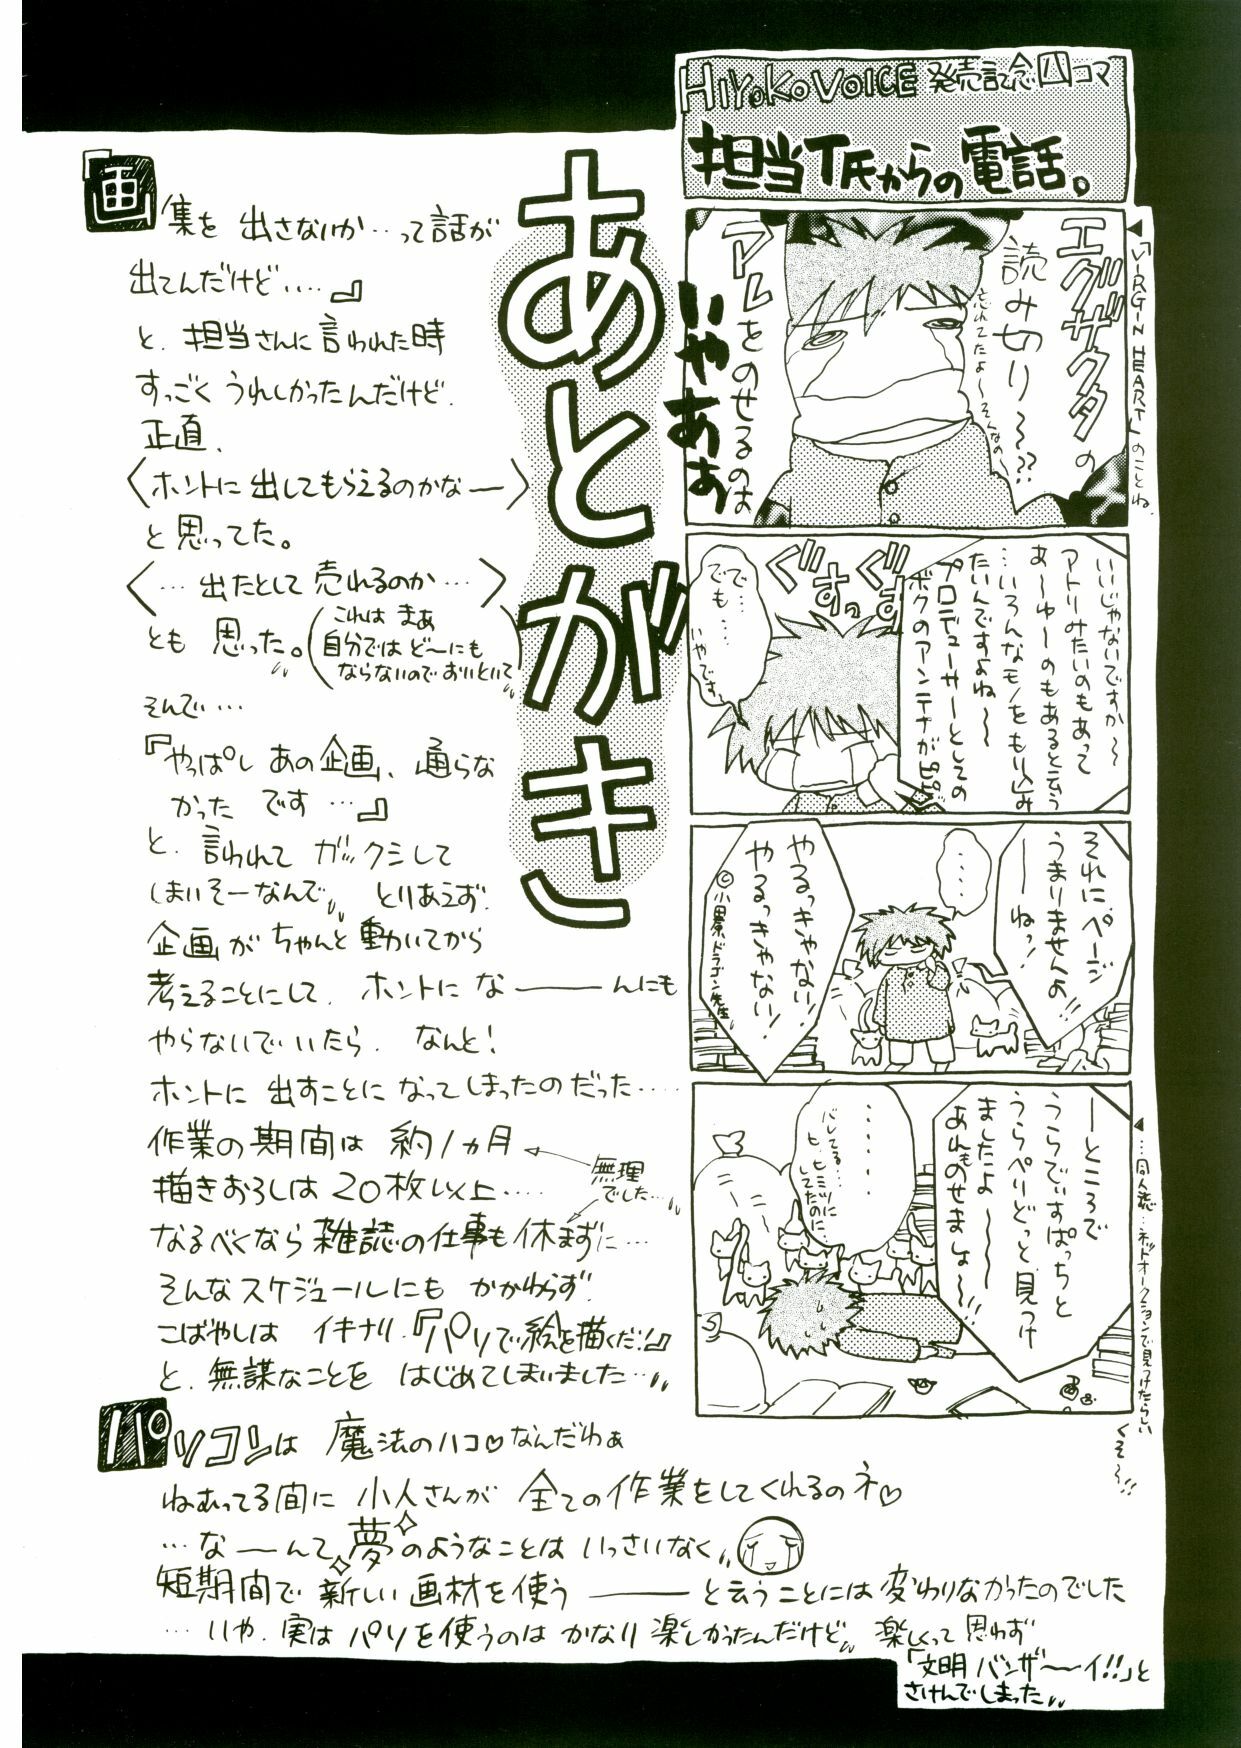 HIYOKO VOICE 発売記念四コマ
担当T氏からの電話。
エグザクタの
読み切り〜??
忘れてたよ〜そんなの
アレをのせるのは
いやあぁ
◀「VIRGIN HEART」のことね.
いいじゃないですか〜
アトリみたいのもあって
あ〜ゆーのもあると云う
…いろんなモノをもり込み
たいんですよね〜
プロデューサーとしての
ボクのアンテナが
ぐすっ
ぐす
でで…
でも…
いやです
それにページ
うまりませんよ!!
――ね!
・・・・
やるっきゃない!
やるっきゃない!
©小田原ドラゴン先生
――ところで
うらでぃすぱっちと
うらぺりどっと見つけ
ましたよ〜〜
あれものせましょ〜!!
・・・・・・
バレてる…
ヒ、ヒミツに
してたのに
◀…同人誌…ネットオークションで見つけたらしい
くそ〜!!
あとがき
『画集を出さないか…って話が
出てんだけど‥‥』
と、担当さんに言われた時
すっごくうれしかったんだけど、
正直、
〈ホントに出してもらえるのかなー〉
と思ってた。
〈…出たとして売れるのか…〉
とも思った。
(これは まぁ
自分では ど〜にも
ならないので おいといて)
そんで…
『やっぱし あの企画、通らな
かった です…』
と、言われて ガックシして
しまいそーなんで、とりあえず、
企画が ちゃんと 動いてから
考えることにして、ホントに な―――んにも
やらないでいたら、なんと!
ホントに 出すことに なってしまったのだった‥‥
作業の期間は 約1ヵ月
描きおろしは 20枚以上‥‥
無理
でした…
なるべくなら 雑誌の仕事も 休まずに…
そんなスケジュールにも かかわらず、
こばやしは イキナリ、『パソで絵を描くだ!』
と、無謀なことを はじめてしまいました…
パソコンは 魔法のハコ♡なんだわぁ
ねむってる間に 小人さんが 全ての作業をしてくれるのネ♡
…な――んて 夢のようなことは いっさいなく
短期間で 新しい 画材を使う ―――と云うことには 変わりなかったのでした
…いや、実は パソを使うのは かなり 楽しかったんだけど、楽しくって 思わず
「文明 バンザ〜〜イ!!」と
さけんでしまった